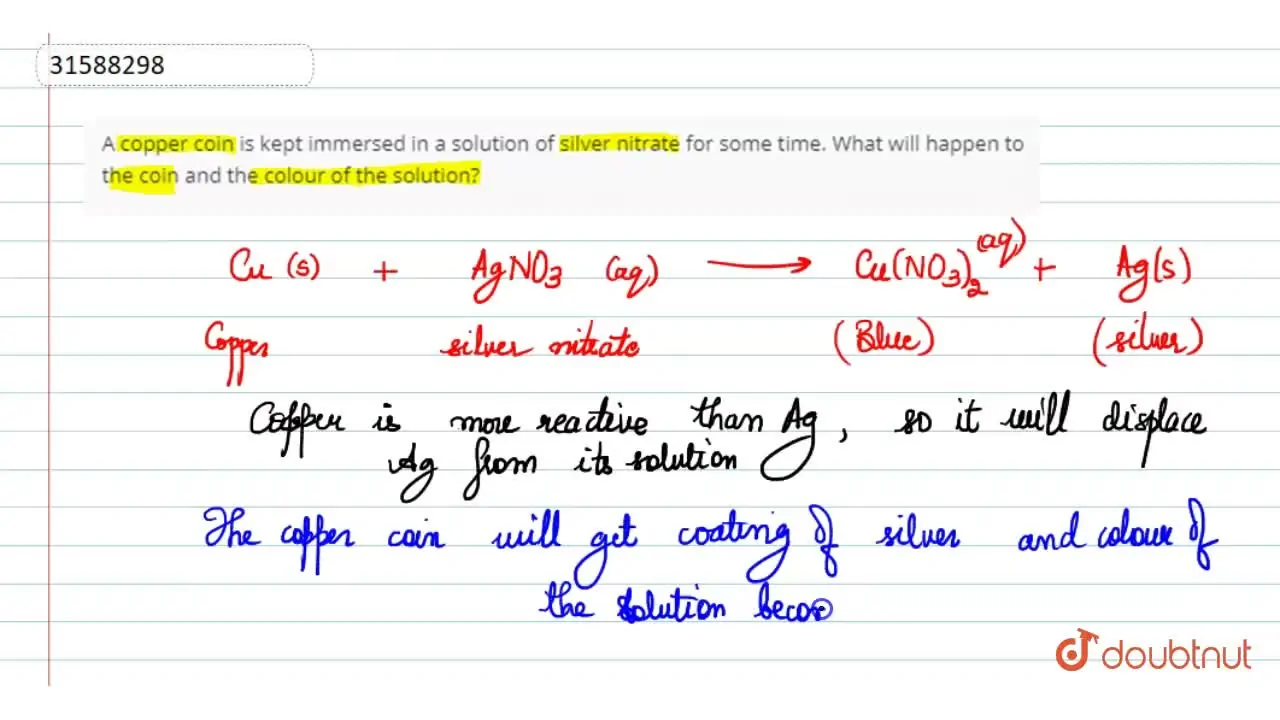 31588298
A copper coin is kept immersed in a solution of silver nitrate for some time. What will happen to
the coin and the colour of the solution?
Cu (s) + AgNO3 (aq) → Cu(NO3)2 (aq) + Ag(s)
Copper silver nitrate (Blue) (silver)
Copper is more reactive than Ag, so it will displace
Ag from its solution
The copper coin will get coating of silver and colour of
the solution becom
doubtnut